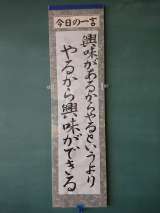 今日の一言
興味があるからやるというより
やるから興味ができる